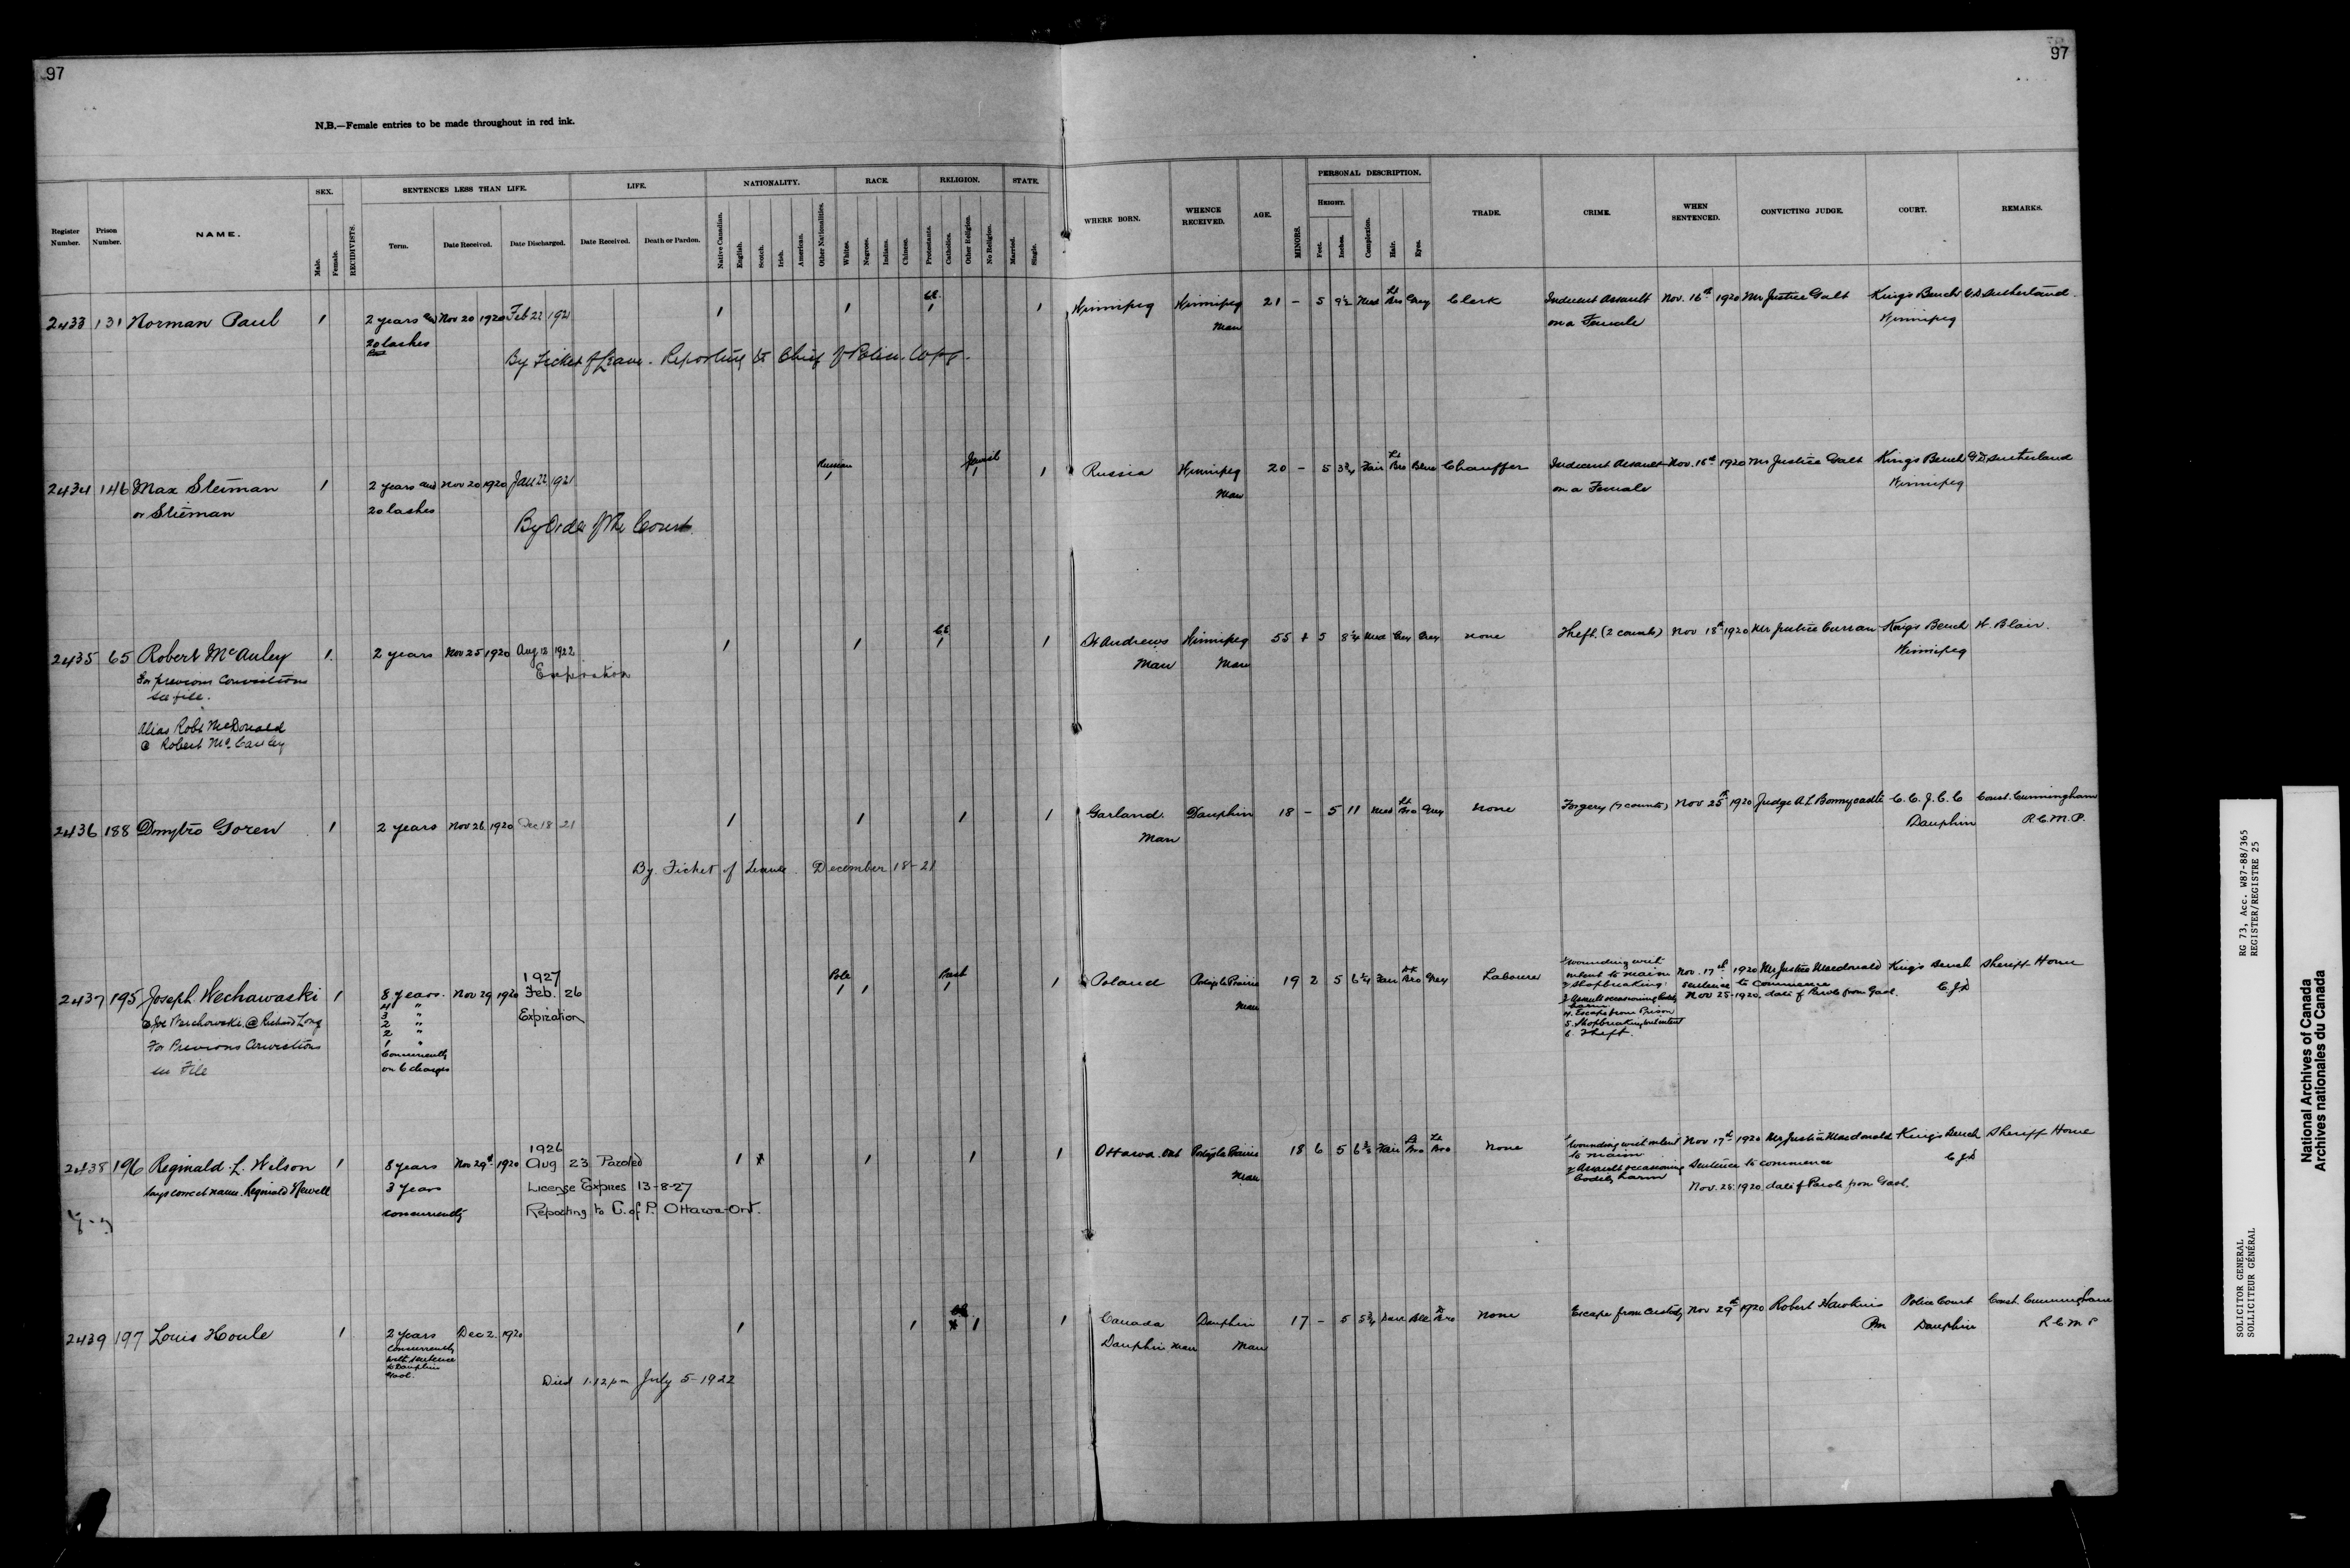 97
97
N.B.—Female entries to be made throughout in red ink.
Register Number.
Prison Number.
NAME.
SEX.
Male.
Female.
RECIDIVISTS.
SENTENCES LESS THAN LIFE.
Term.
Date Received.
Date Discharged.
LIFE.
Date Received.
Death or Pardon.
NATIONALITY.
Native Canadian.
English.
Scotch.
Irish.
American.
Other Nationalities.
RACE.
Whites.
Negroes.
Indians.
Chinese.
RELIGION.
Protestants.
Catholics.
Other Religion.
No Religion.
STATE.
Married.
Single.
WHERE BORN.
WHENCE RECEIVED.
AGE.
MINORS.
PERSONAL DESCRIPTION.
HEIGHT.
Feet.
Inches.
Complexion.
Hair.
Eyes.
TRADE.
CRIME.
WHEN SENTENCED.
CONVICTING JUDGE.
COURT.
REMARKS.
2433 131 Norman Paul 1 2 years and Nov 20 1920 Feb 22 1921 1 1 1 1 Winnipeg Winnipeg 21 – 5 9½ Med Lt Bro Grey Clerk Indecent Assault Nov. 16th 1920 Mr Justice Galt King's Bench Sutherland
20 lashes Man on a Female Winnipeg
By Ticket of Leave. Reporting to Chief of Police. Wpg.
2434 146 Max Steiman 1 2 years and Nov 20 1920 Jan 22 1921 Russian 1 Jewish 1 1 Russia Winnipeg 20 – 5 3¾ Fair Lt Bro Blue Chauffer Indecent Assault Nov. 16th 1920 Mr Justice Galt King's Bench Sutherland
or Stieman 20 lashes Man on a Female Winnipeg
By Order of the Court.
2435 65 Robert McAuley 1 2 years Nov 25 1920 Aug 18 1922 1 1 1 1 St Andrews Winnipeg 55 5 8¼ Med Grey Grey none Theft (2 counts) Nov 18th 1920 Mr Justice Curran King's Bench H. Blair
For previous Convictions Expiration Man Man Winnipeg
see file.
Alias Robt McDonald
@ Robert McCauley
2436 188 Dmytro Goren 1 2 years Nov 26 1920 Dec 18 21 1 1 1 1 Garland. Dauphin 18 – 5 11 Med Lt Bro Grey none Forgery (7 counts) Nov 25th 1920 Judge A.L. Bonnycastle C.C.J.C.C Const. Cunningham
Man Dauphin R.C.M.P.
By. Ticket of Leave. December 18-21
2437 195 Joseph Wechawaski 1 8 years. Nov 29 1920 1927 Feb. 26 Pole 1 1 1 1 Poland Portage la Prairie 19 2 5 6¼ Fair Dk Bro Grey Labourer Nov. 17th 1920 Mr Justice Macdonald King's Bench Sheriff Home
@ Joe Wechowski @ Richard Long 4 " Expiration Man sentence to commence
For Previous Convictions 3 " Nov 25-1920. date of Parole from Gaol.
see File 2 "
2 "
1 "
Concurrently
on 6 charges
1 wounding with
intent to maim
2 shopbreaking
3 Assault occasioning bodily
harm
4. Escape from Prison
5. Shopbreaking with intent
6. Theft.
2438 196 Reginald L. Wilson 1 8 years Nov 29th 1920 1926 Aug 23 Paroled 1 x 1 1 1 Ottawa. Ont Portage la Prairie 18 6 5 Fair Bro Lt Bro none Wounding with intent Nov 17th 1920 Mr Justice Macdonald King's Bench Sheriff Home
Says correct name. Reginald Newell 3 years License Expires 13-8-27 Man to maim
concurrently Reporting to C. of P. Ottawa-Ont. 2 Assault occasioning Sentence to commence
bodily harm Nov. 25. 1920. date of Parole from Gaol.
2439 197 Louis Houle 1 2 years Dec 2. 1920 1 1 x 1 1 Canada Dauphin 17 – 5 5¾ Dark Blk Bro none Escape from Custody Nov 29th 1920 Robert Hawkins Police Court Const Cunningham
Concurrently Dauphin Man Man PM Dauphin R C M P
with sentence
to Dauphin
Gaol.
Died 1.12 pm July 5-1922
RG 73, Acc. W87-88/365
REGISTER/REGISTRE 25
SOLICITOR GENERAL
SOLLICITEUR GÉNÉRAL
National Archives of Canada
Archives nationales du Canada